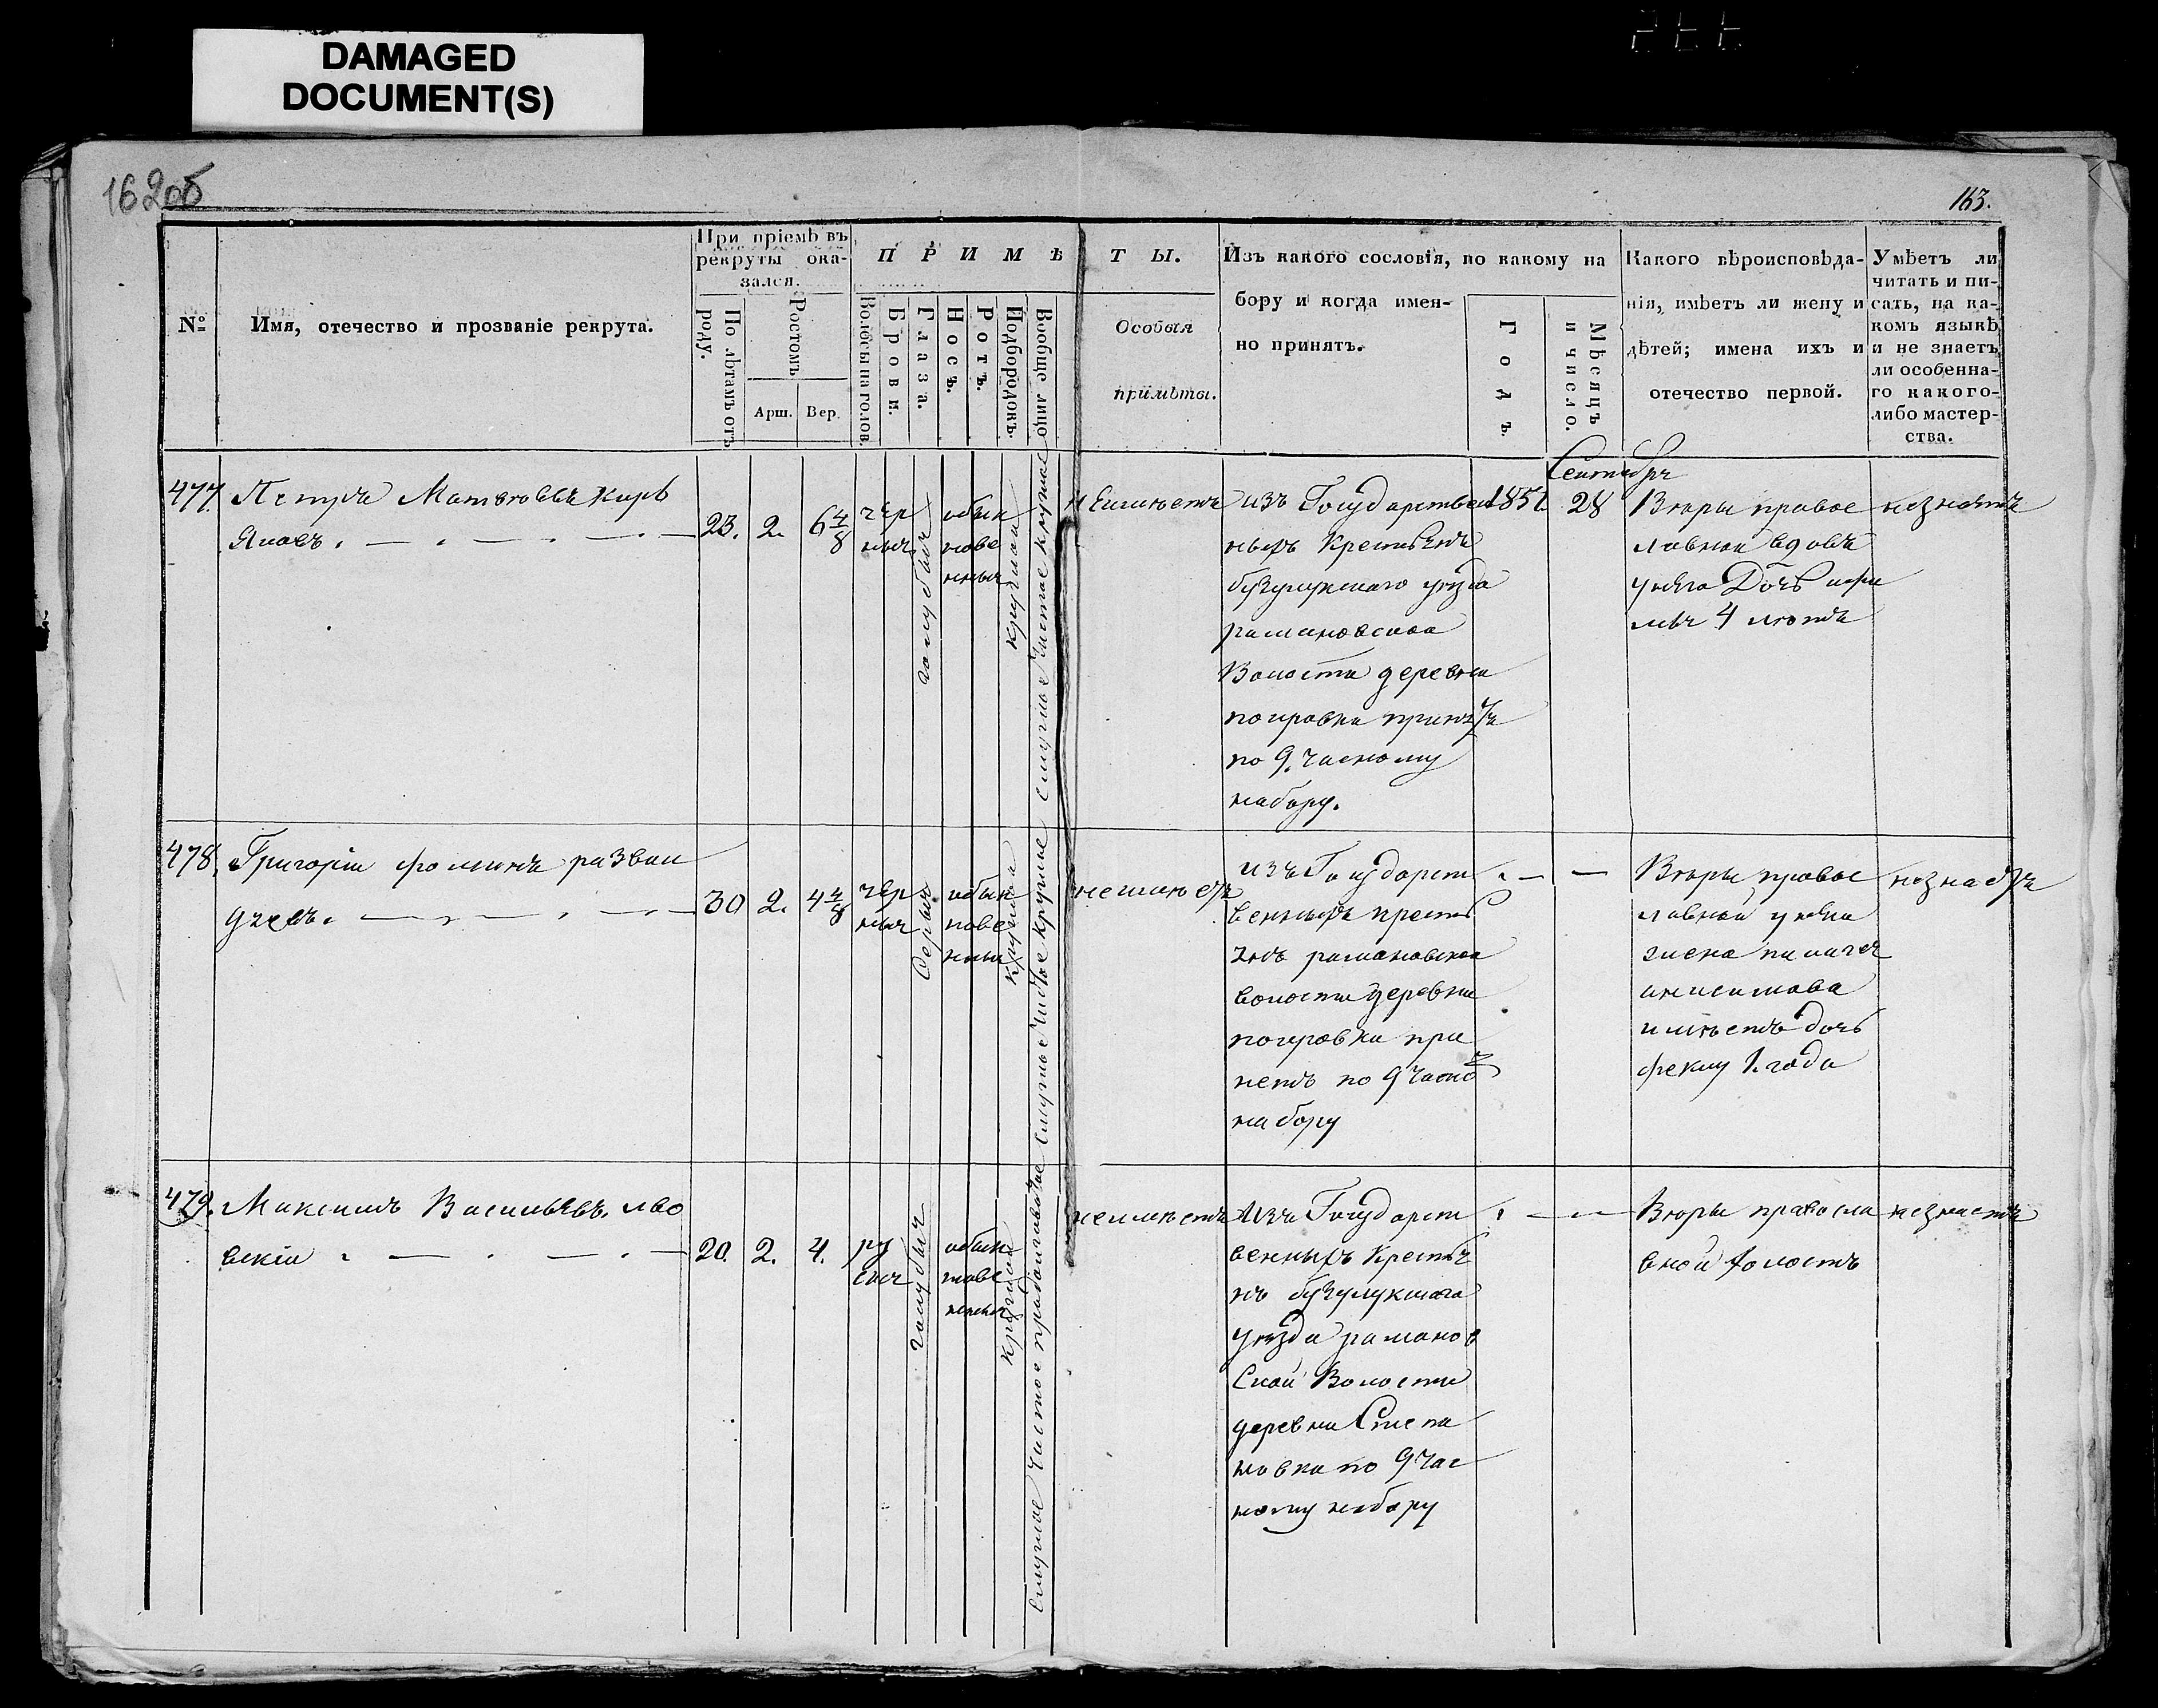 DAMAGED
DOCUMENT(S)
162об
163.
№
Имя, отечество и прозваніе рекрута.
При пріемѣ въ
рекруты ока-
зался.
По лѣтамъ отъ
роду.
Ростомъ
Арш.
Вер.
ПРИМѢ
ТЫ.
Волосы на голов.
Брови.
Глаза.
Носъ.
Ротъ.
Подбородокъ.
Вообще лицо
Особыя
примѣты.
Изъ какого сословія, по какому на
бору и когда имен-
но принятъ.
Годъ.
Мѣсяцъ
и число.
Какого вѣроисповѣда-
нія, имѣетъ ли жену и
дѣтей; имена ихъ и
отечество первой.
Умѣетъ ли
читать и пи-
сать, на ка-
комъ языкѣ
и не знаетъ
ли особенна-
го какого-
либо мастер-
ства.
477
Петръ Матвѣевъ
23.
2.
6 4/8
чер
ныя
голубыя
обык
нове
нныя
круглой
смуглое чистое круглае
изъ Государствен
ныхъ Крестьянъ
бузулукскаго уѣзда
рамановскоа
Воласти деревни
покравки принятъ
по 9. часному
набору.
1851
Сентябрь
28
Вѣры правос
лавной вдовъ
унѣго Дочь
4 лѣтъ
незнаетъ
478.
Григорій фоминъ
30
2.
4 4/8
чер
ныя
серыя
обык
нове
нныи
круглой
смуглое чистое круглае
неимѣетъ
изъ Государст
венныхъ кресть
янъ рамановскоа
воласти деревни
покравки при
нетъ по 9 часно
набору
Вѣры правос
лавной унѣго
жена
анисимова
имѣетъ дочь
феклу 1. года
незнаетъ
479.
Максимъ Васильевъ. лво
вскіи
20.
2.
4.
ру
сыя
голубыя
обык
нове
нныя
круглой
смуглае чистое продолговатае
неимѣетъ
Изъ Государст
венныхъ Крестья
нъ бузулукскага
уѣзда раманов
Скай Воласти
деревни Степа
новки по 9 час
ному набору
Вѣры правосла
вной холостъ
незнаетъ